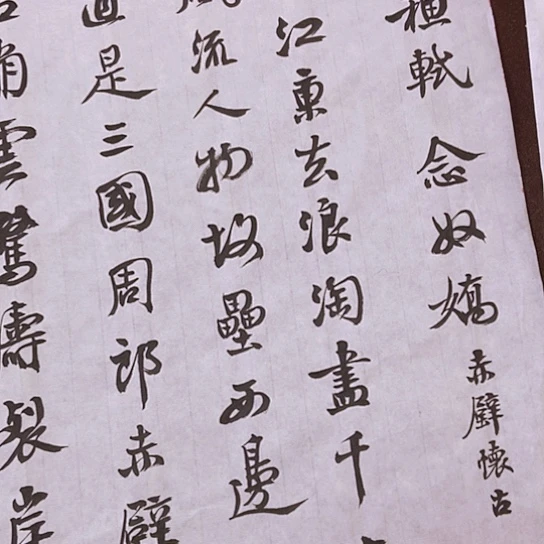 軾 念奴嬌 赤壁懷古
江東去浪淘盡千
風流人物故壘西邊
道是三國周郎赤壁
雲驚濤裂岸